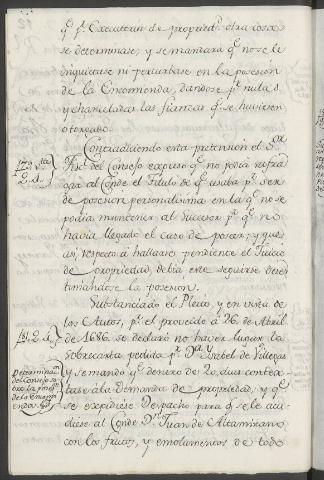 q.e p.r Executoria de propried.d otra cosa
se determinase; y se mandara q.e no se le
inquietase ni perturbase en la posesion
de la Encomienda, dandose p.r nulas
y chanceladas las fianzas q.e se huviesen
otorgado.
Contradiciendo esta pretension el S.or
Fisc.l del Consejo expuso q.e no podia sufra
gar al Conde el Titulo de q.e usaba p.r ser
de posesion personalisima en la q.e no se
podia mantener al sucesor p.r q.e no
havia llegado el caso de poseer; y que
asi, respecto á hallarse pendiente el Juicio
de propiedad, debia este seguirse deses
timandose la posesion.
Substanciado el Pleito, y en vista de
los Autos, p.r el proveido á 26. de Abril
de 1686. se declaró no haver lugar la
sobrecarta pedida p.r D.a Ysabel de Villegas
y se mandó q.e dentro de 20, dias contex
tase á la demanda de propiedad, y q.e
se expidiese Despacho para q.e se le acu
diese al Conde D.n Juan de Altamirano
con los frutos, y emolumentos de todo
2. d.
2. d.
Determinac.n
del Consejo so
bre la poses.n
de la Encomi
enda